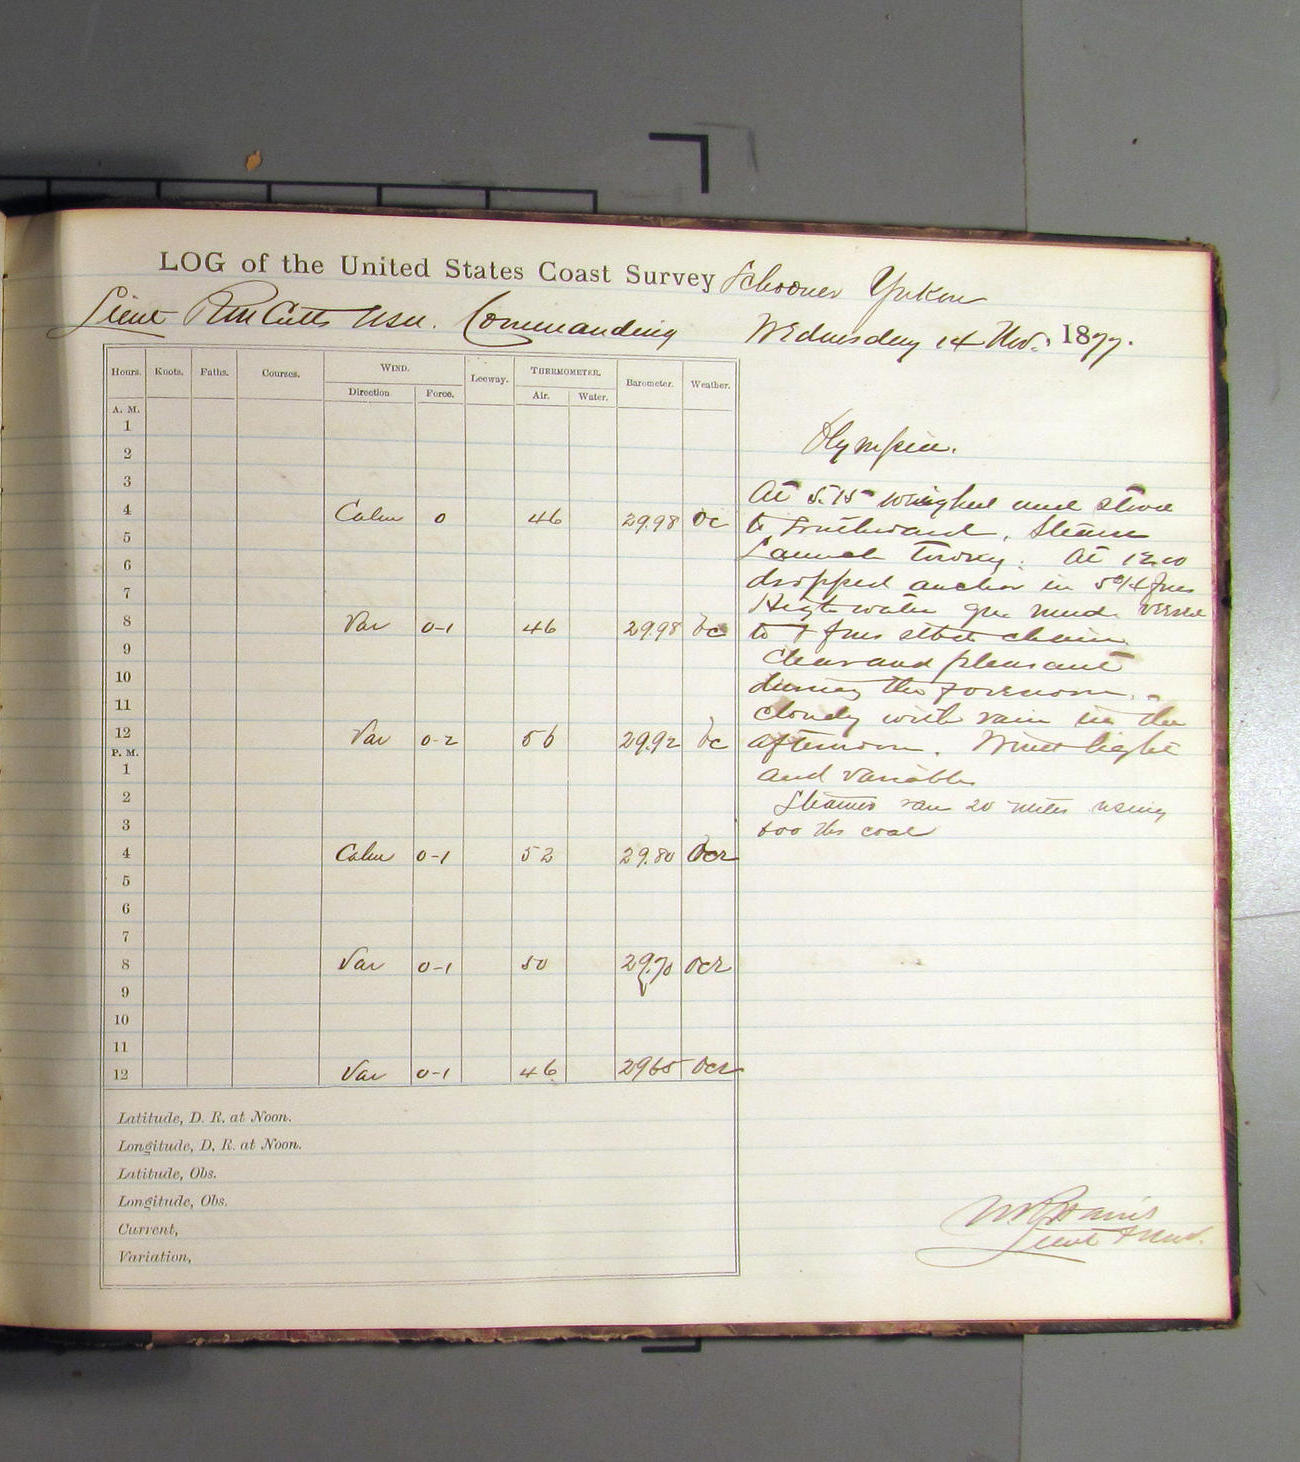 LOG of the United States Coast Survey Schooner Yukon
Lieut R M Cutts USN. Commanding Wednesday 14 Nov. 1877.
Hours. Knots. Faths. Courses. WIND. Leeway. THERMOMETER. Barometer. Weather.
Direction Force. Air. Water.
A. M.
1
2
3
4 Calm 0 46 29.98 bc
5
6
7
8 Var 0-1 46 29.98 bc
9
10
11
12 Var 0-2 56 29.92 bc
P. M.
1
2
3
4 Calm 0-1 52 29.80 ocr
5
6
7
8 Var 0-1 50 29.70 ocr
9
10
11
12 Var 0-1 46 2965 ocr
Latitude, D. R. at Noon.
Longitude, D, R. at Noon.
Latitude, Obs.
Longitude, Obs.
Current,
Variation,
Olympia.
At 5.15 weighed and stood
to Southward, Steam
Launch towing. At 12.00
dropped anchor in 5 3/4 fms
High water mud. veered
to fms chain
clear and pleasant
during the forenoon.
cloudy with rain in the
afternoon. Wind light
and variable
Steamer ran 20 miles using
600 lbs coal
Harris
Lieut